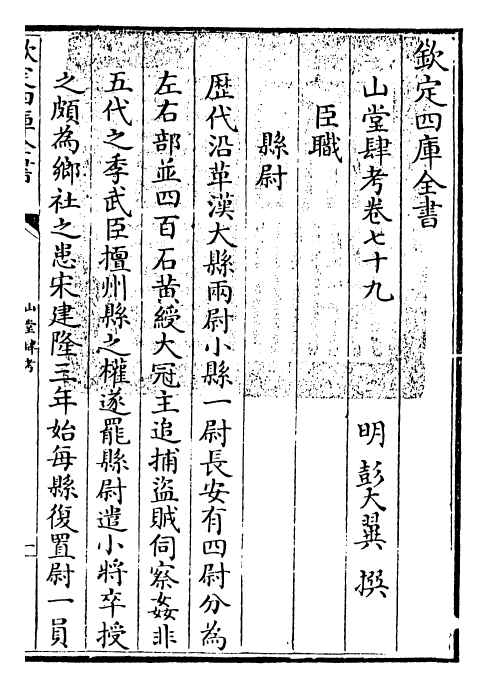 欽定四庫全書
山堂肆考卷七十九
明 彭大翼 撰
臣職
縣尉
歴代沿革漢大縣兩尉小縣一尉長安有四尉分為
左右部並四百石黄綬大冠主追捕盜賊伺察姦非
五代之季武臣擅州縣之權遂罷縣尉遣小將卒授
之頗為鄉社之患宋建隆三年始每縣復置尉一員
欽定四庫全書
山堂肆考
一